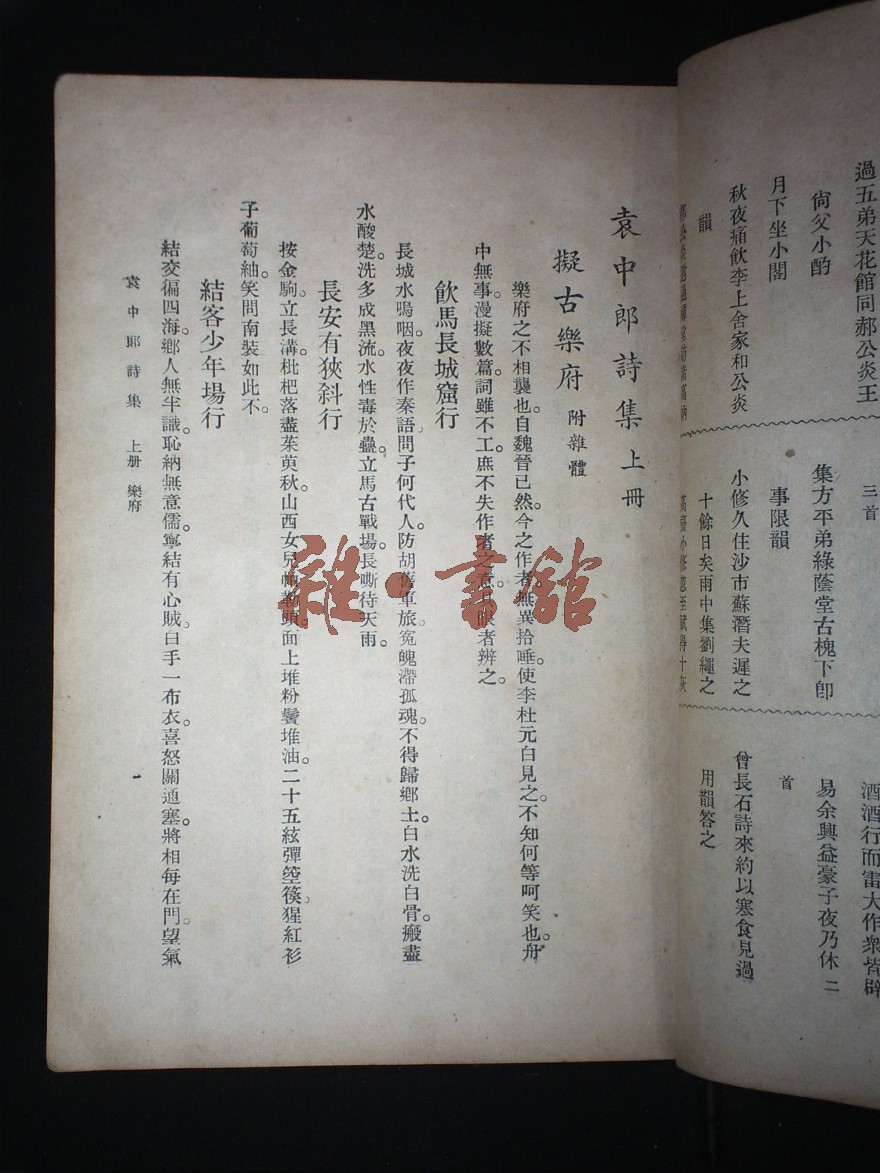 過五弟天花館同郝公炎王
尙父小酌
月下坐小閣
秋夜痛飲李上舍家和公炎
韻
三首
集方平弟綠蔭堂古槐下卽
事限韻
小修久住沙市蘇潛夫遲之
十餘日矣雨中集劉繩之
酒酒行而雷大作衆皆辟
易余興益豪子夜乃休 二
首
曾長石詩來約以寒食見過
用韻答之
袁中郎詩集 上冊
擬古樂府 附雜體
樂府之不相襲也。自魏晉已然。今之作者。無異拾唾。使李杜元白見之。不知何等呵笑也。舟
中無事。漫擬數篇。詞雖不工。庶不失作者之意。具眼者辨之。
飮馬長城窟行
長城水嗚咽。夜夜作秦語。問子何代人。防胡舊軍旅。寃魄滯孤魂。不得歸鄉土。白水洗白骨。搬盡
水酸楚。洗多成黑流。水性毒於蠱。立馬古戰場。長嘶待天雨。
長安有狹斜行
按金駒。立長溝。枇杷落盡茱萸秋。山西女兒帕勒頭。面上堆粉鬢堆油。二十五絃彈箜篌。猩紅衫
子葡萄紬。笑問南裝如此不。
結客少年場行
結交徧四海。鄉人無半識。恥納無意儒。寧結有心賊。白手一布衣。喜怒關通塞。將相每在門。望氣
袁中郎詩集 上册 樂府
一
雜·書館